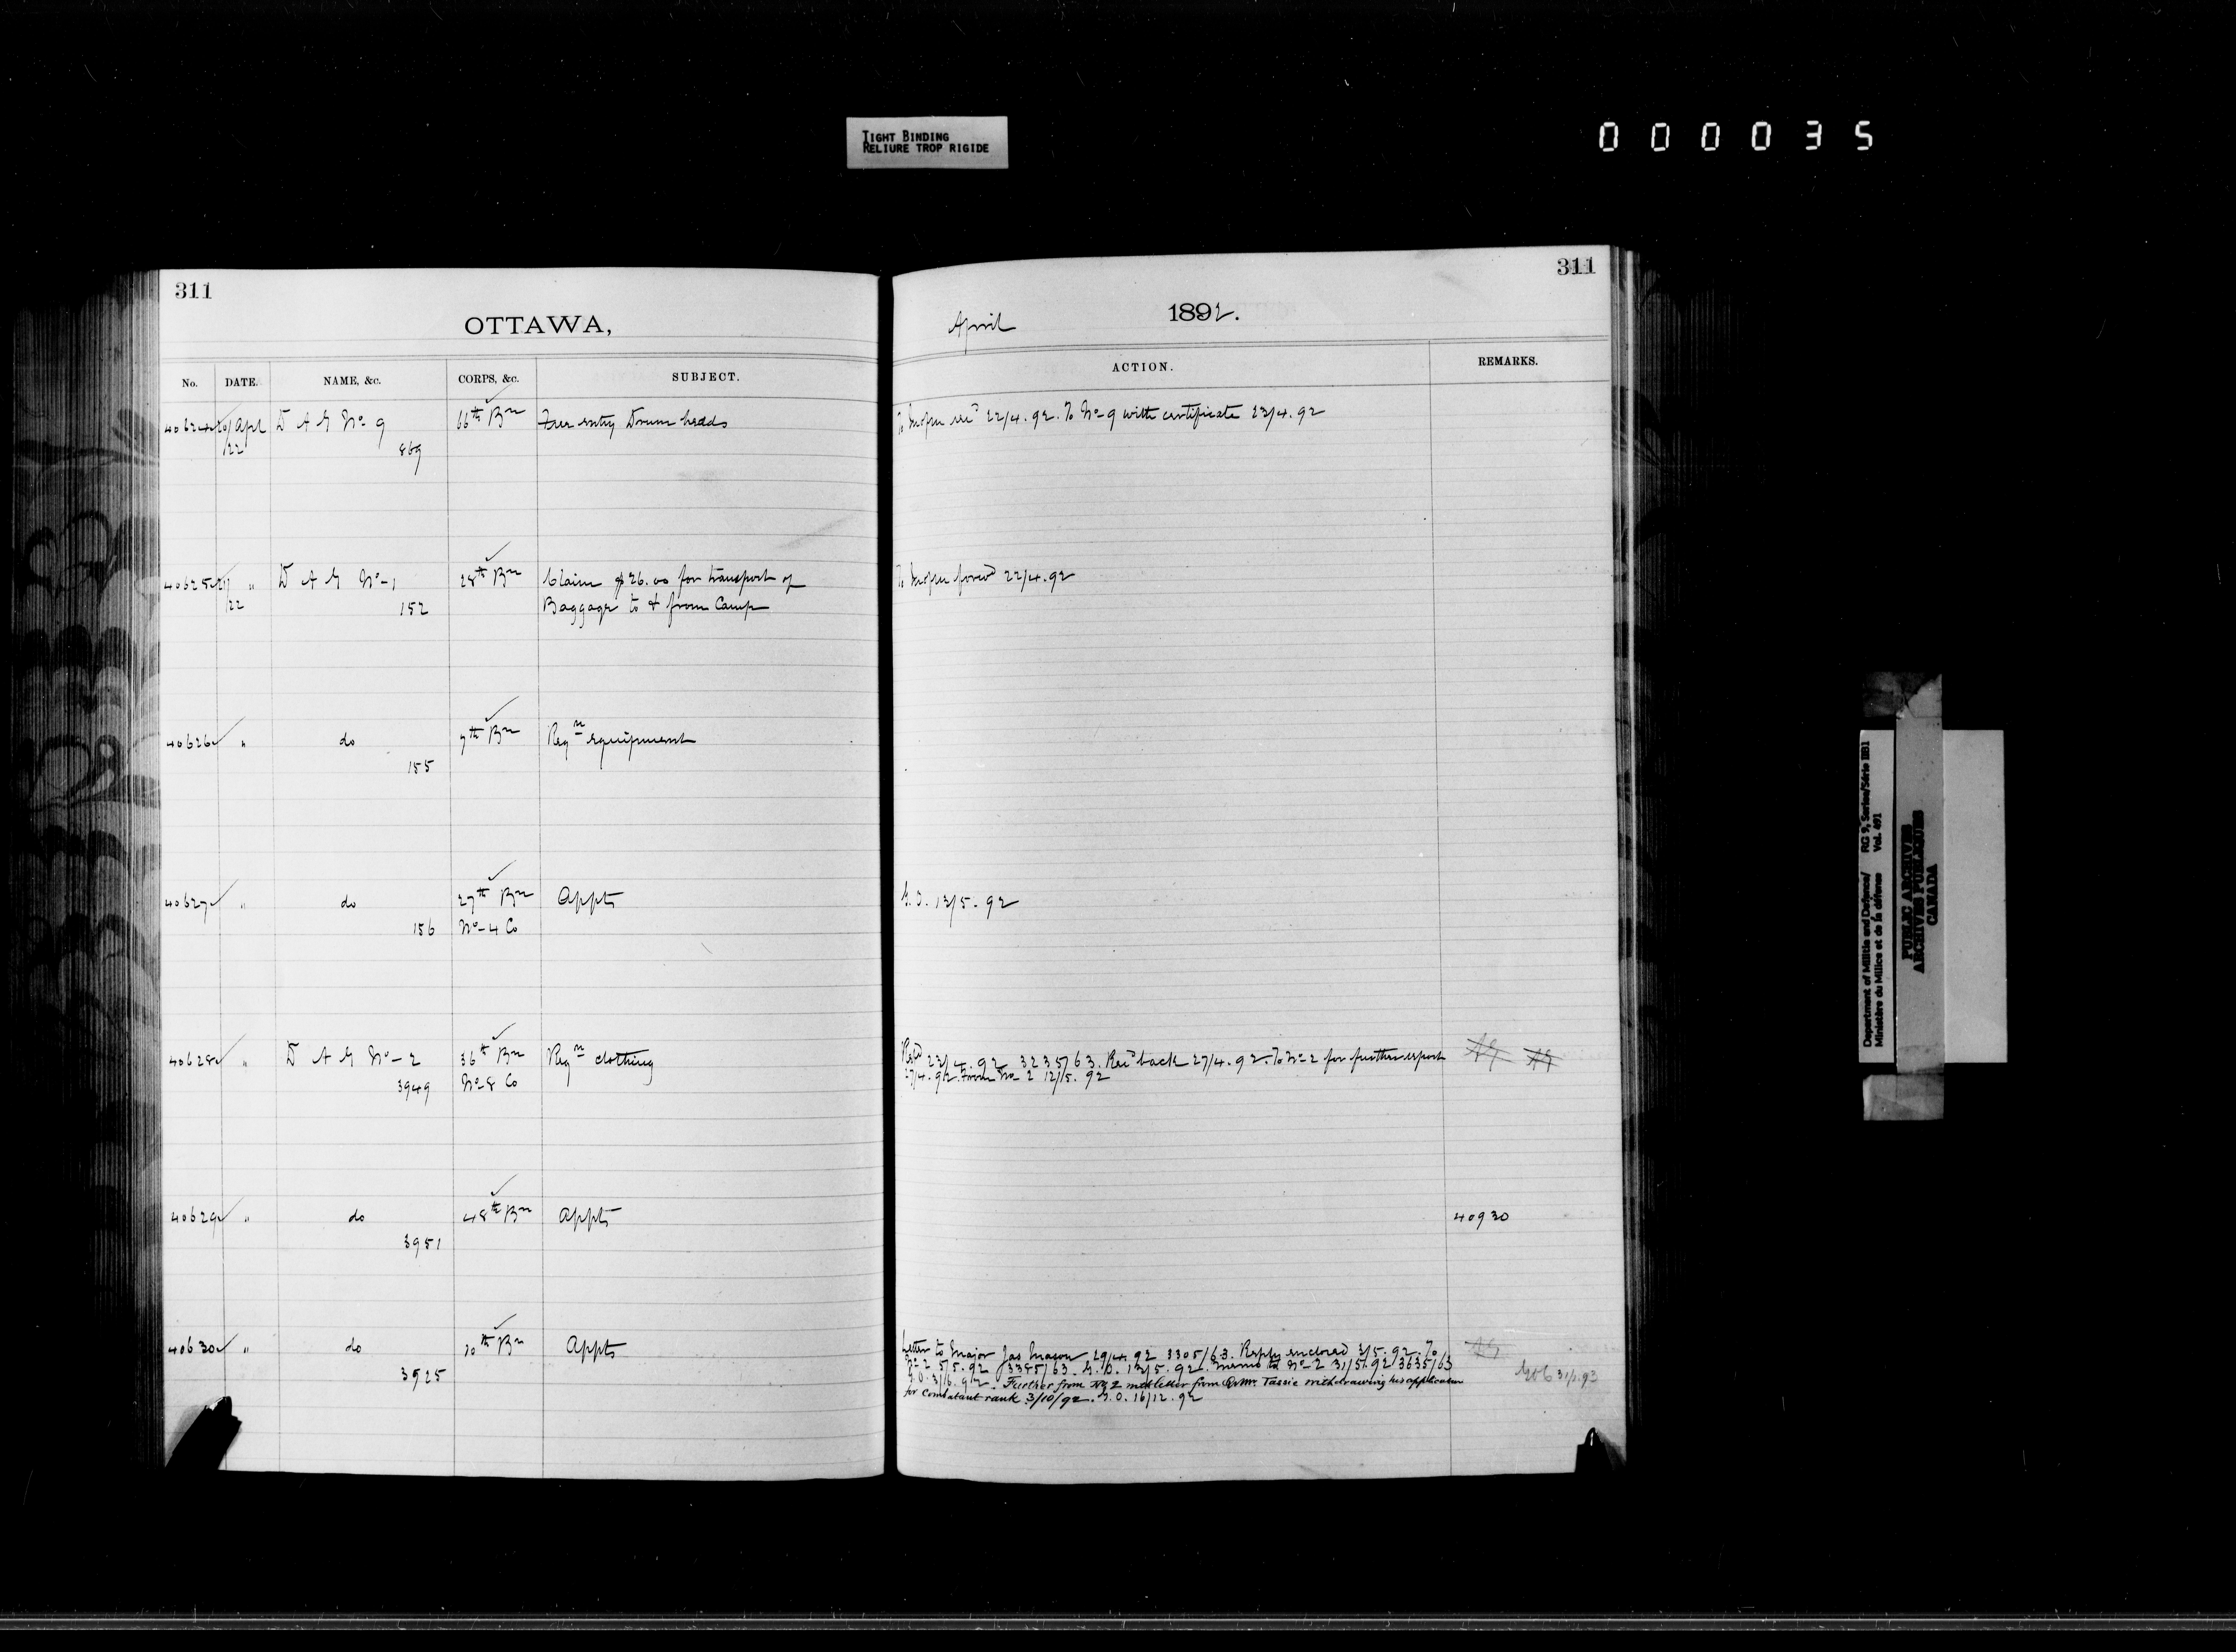 TIGHT BINDING
RELIURE TROP RIGIDE
000035
311
311
OTTAWA,
April 1892.
No. DATE. NAME, &c. CORPS, &c. SUBJECT. ACTION. REMARKS.
40624 20/Apl D A G No 9 66th Bn Free entry Drum heads To 22/4.92. To No 9 with certificate 23/4.92
/22 869
40625 21/ " D A G No 1 28th Bn Claim $26.00 for transport of To forwd 22/4.92
/22 152 Baggage to & from Camp
40626 " do 7th Bn Reqn equipment
155
40627 " do 27th Bn Appts G.O. 13/5.92
156 No 4 Co
40628 " D A G No 2 36th Bn Reqn clothing 23/4.92 3235/63. Recd back 27/4.92. To No 2 for further report
3949 No 8 Co 27/4.92. From No 2 12/5.92
40629 " do 48th Bn Appts 40930
3951
40630 " do 10th Bn Appts Letter to Major Jas Mason 29/4.92 3305/63. Reply enclosed 3/5.92. To
3925 No 2 5/5.92 3385/63. G.O. 13/5.92. Memo to No 2 31/5.92 3635/63
G.O. 3/6.92. Further from No 2 with letter from Qr Mr. Tassie withdrawing his application
for combatant rank 3/10/92. G.O. 16/12.92
31/1.93
Department of Militia and Defence/ RG 9, Series/Série IIB1
Ministère du Milice et de la défense Vol. 491
PUBLIC ARCHIVES
ARCHIVES PUBLIQUES
CANADA